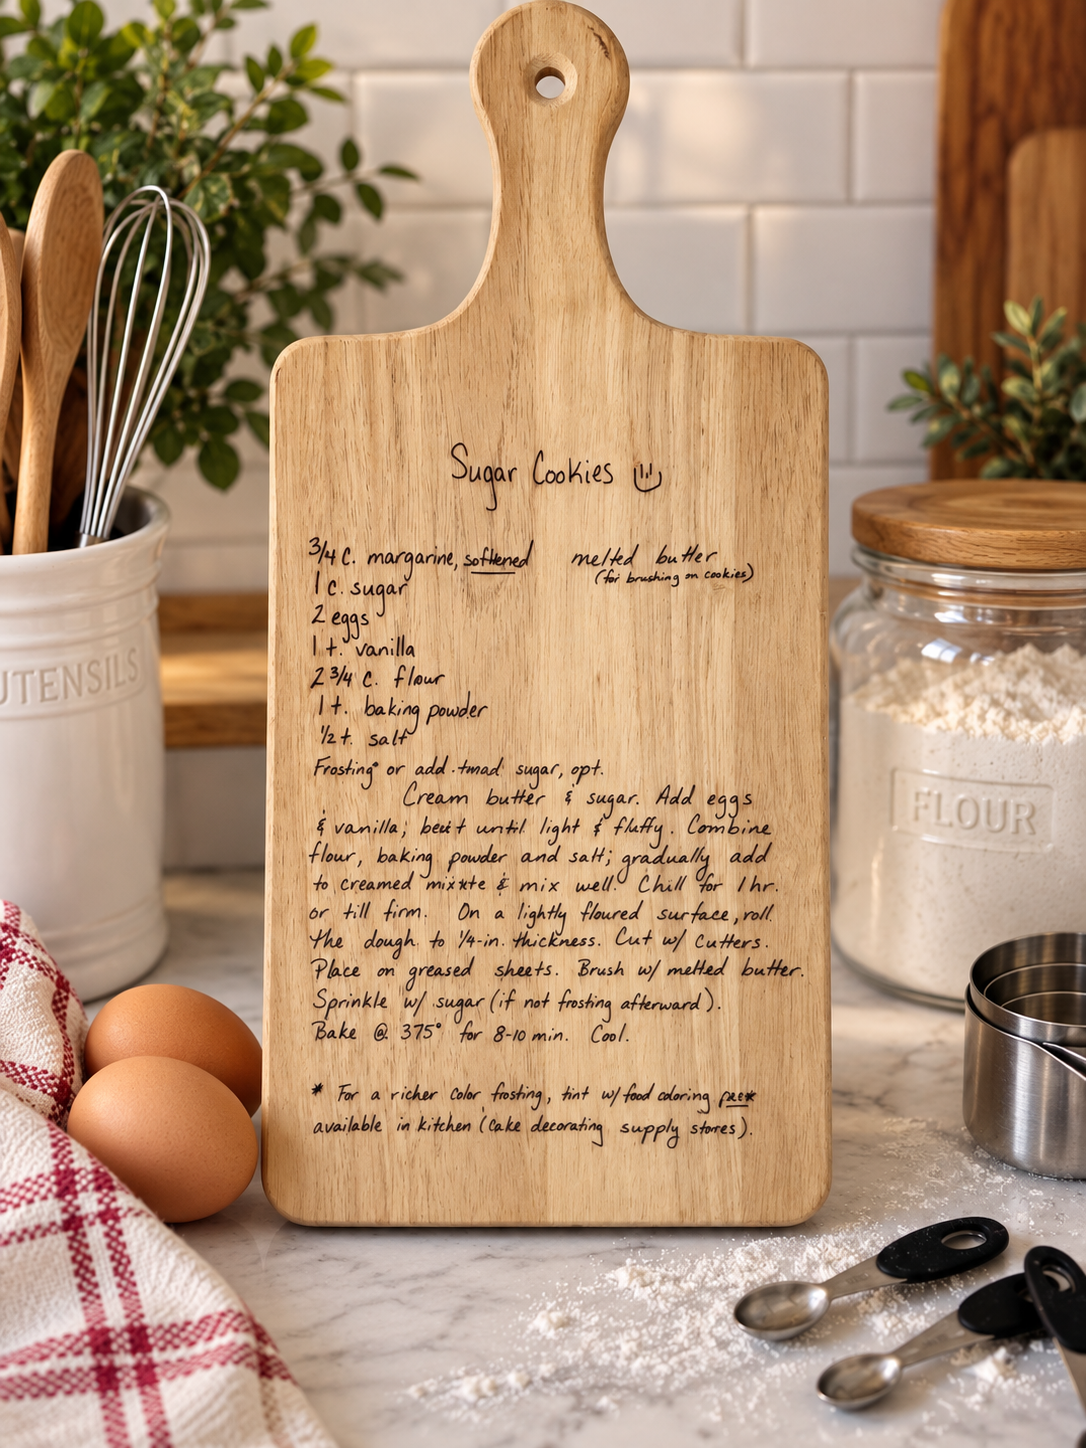 Sugar Cookies
3/4 c. margarine, softened
melted butter
(for brushing on cookies)
1 c. sugar
2 eggs
1 t. vanilla
2 3/4 c. flour
1 t. baking powder
1/2 t. salt
Frosting* or add sugar, opt.
Cream butter & sugar. Add eggs
& vanilla; beat until light & fluffy. Combine
flour, baking powder and salt; gradually add
to creamed & mix well. Chill for 1 hr.
or till firm. On a lightly floured surface, roll
the dough to 1/4-in. thickness. Cut w/ cutters.
Place on greased sheets. Brush w/ melted butter.
Sprinkle w/ sugar (if not frosting afterward).
Bake @ 375° for 8-10 min. Cool.
* For a richer color frosting, tint w/ food coloring
available in kitchen (cake decorating supply stores).
UTENSILS
FLOUR